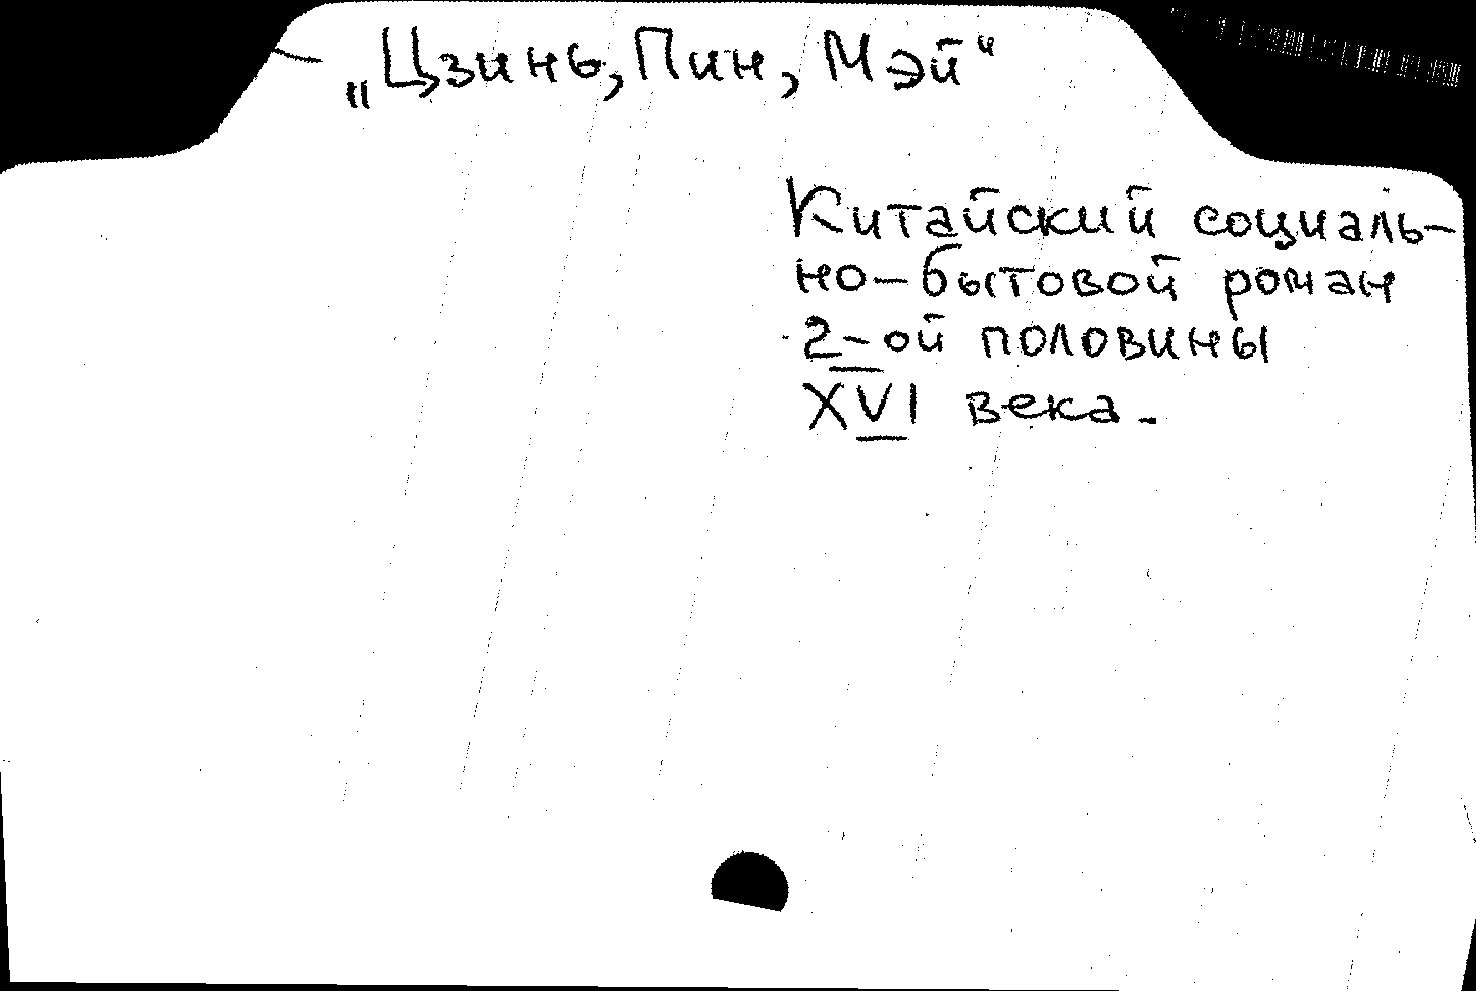 „Цзинь, Пин, Мэй“
Китайский социаль-
но-бытовой роман
2-ой половины
XVI века.